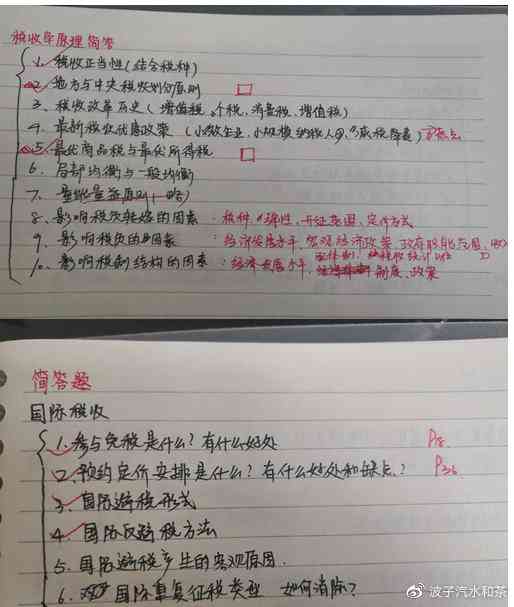 税收学原理简答
1、税收正当性(结合税种)
2、地方与中央税收划分原则
3、税收改革历史(增值税、个税、消费税、增值税)
4、最新税收优惠政策(小微企业,小规模纳税人
5、最优商品税与最优所得税
6、局部均衡与一般均衡
7、
8、影响税收转嫁的因素:税种、弹性、开征范围、定价方式
9、影响税负的因素:经济发展水平、宏观经济政策、政府职能范围、
10、影响税制结构的因素:经济发展水平、制度、政策
简答题
国际税收
1.参与免税是什么?有什么好处 P8.
2.预约定价安排是什么?有什么好处和缺点? P36
3.国际避税形式
4.国际反避税方法
5.国际避税产生的客观原因.
6.国际重复征税类型 如何消除?
波子汽水和茶